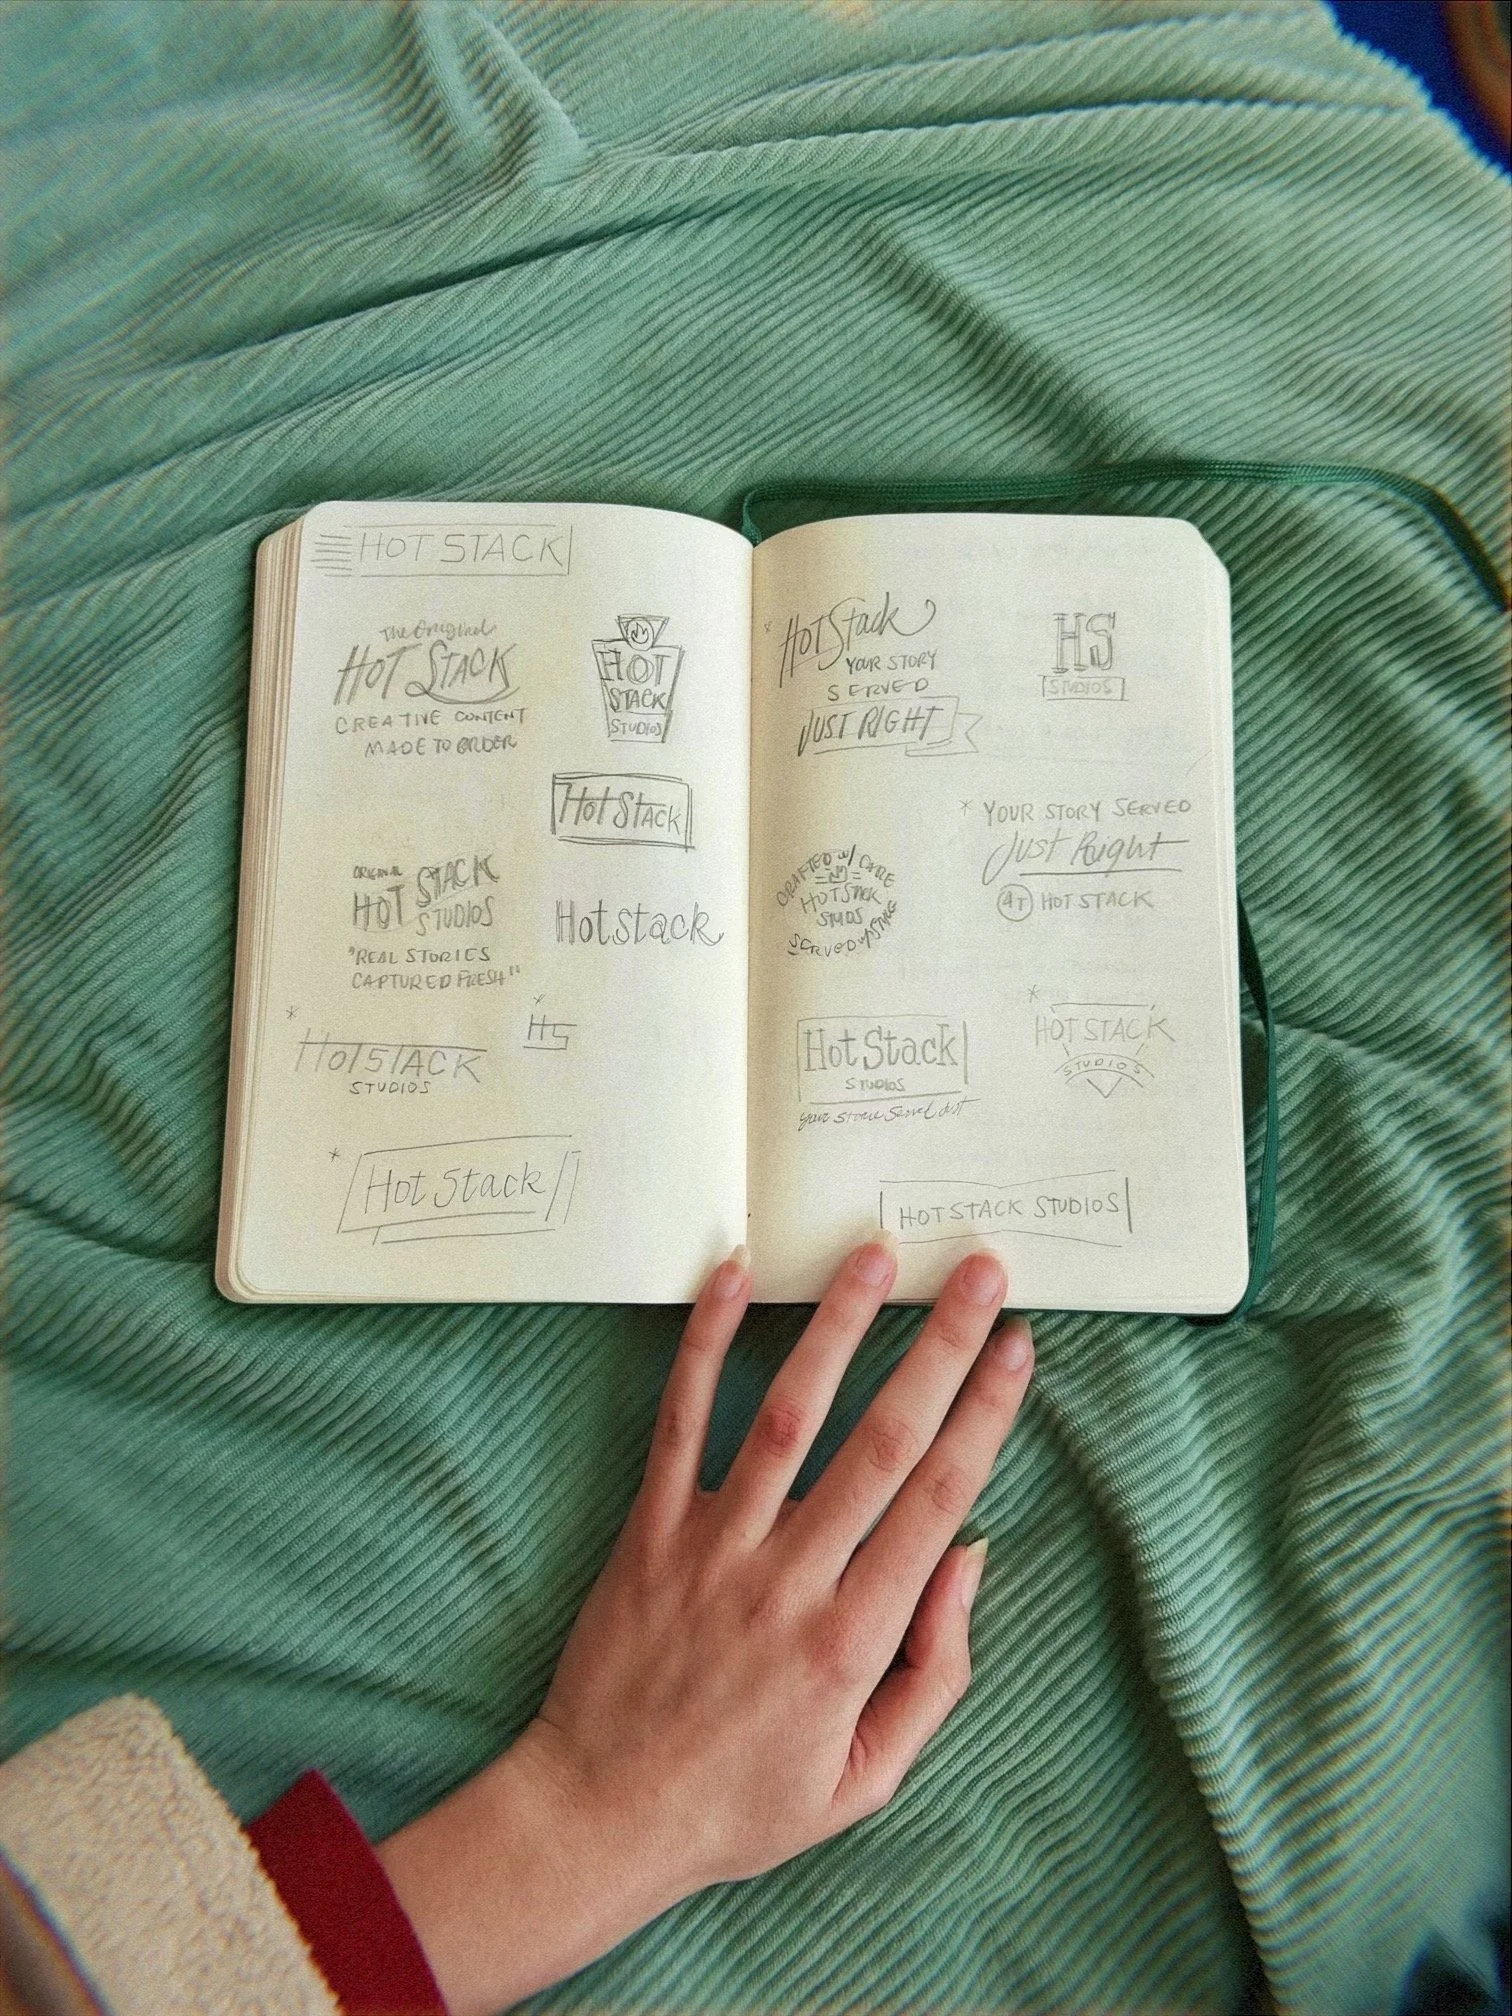 HOT STACK
The Original
HOT STACK
CREATIVE CONTENT
MADE TO ORDER
HOT
STACK
STUDIOS
Hot Stack
ORIGINAL
HOT STACK
STUDIOS
"REAL STORIES
CAPTURED FRESH"
Hotstack
* HS
* HOTSTACK
STUDIOS
* Hot Stack
* Hot Stack
YOUR STORY
SERVED
JUST RIGHT
HS
STUDIOS
* YOUR STORY SERVED
Just Right
AT HOT STACK
CRAFTED w/ CARE
HOTSTACK
STUDIOS
SERVED w/
Hot Stack
STUDIOS
* HOT STACK
STUDIOS
HOTSTACK STUDIOS